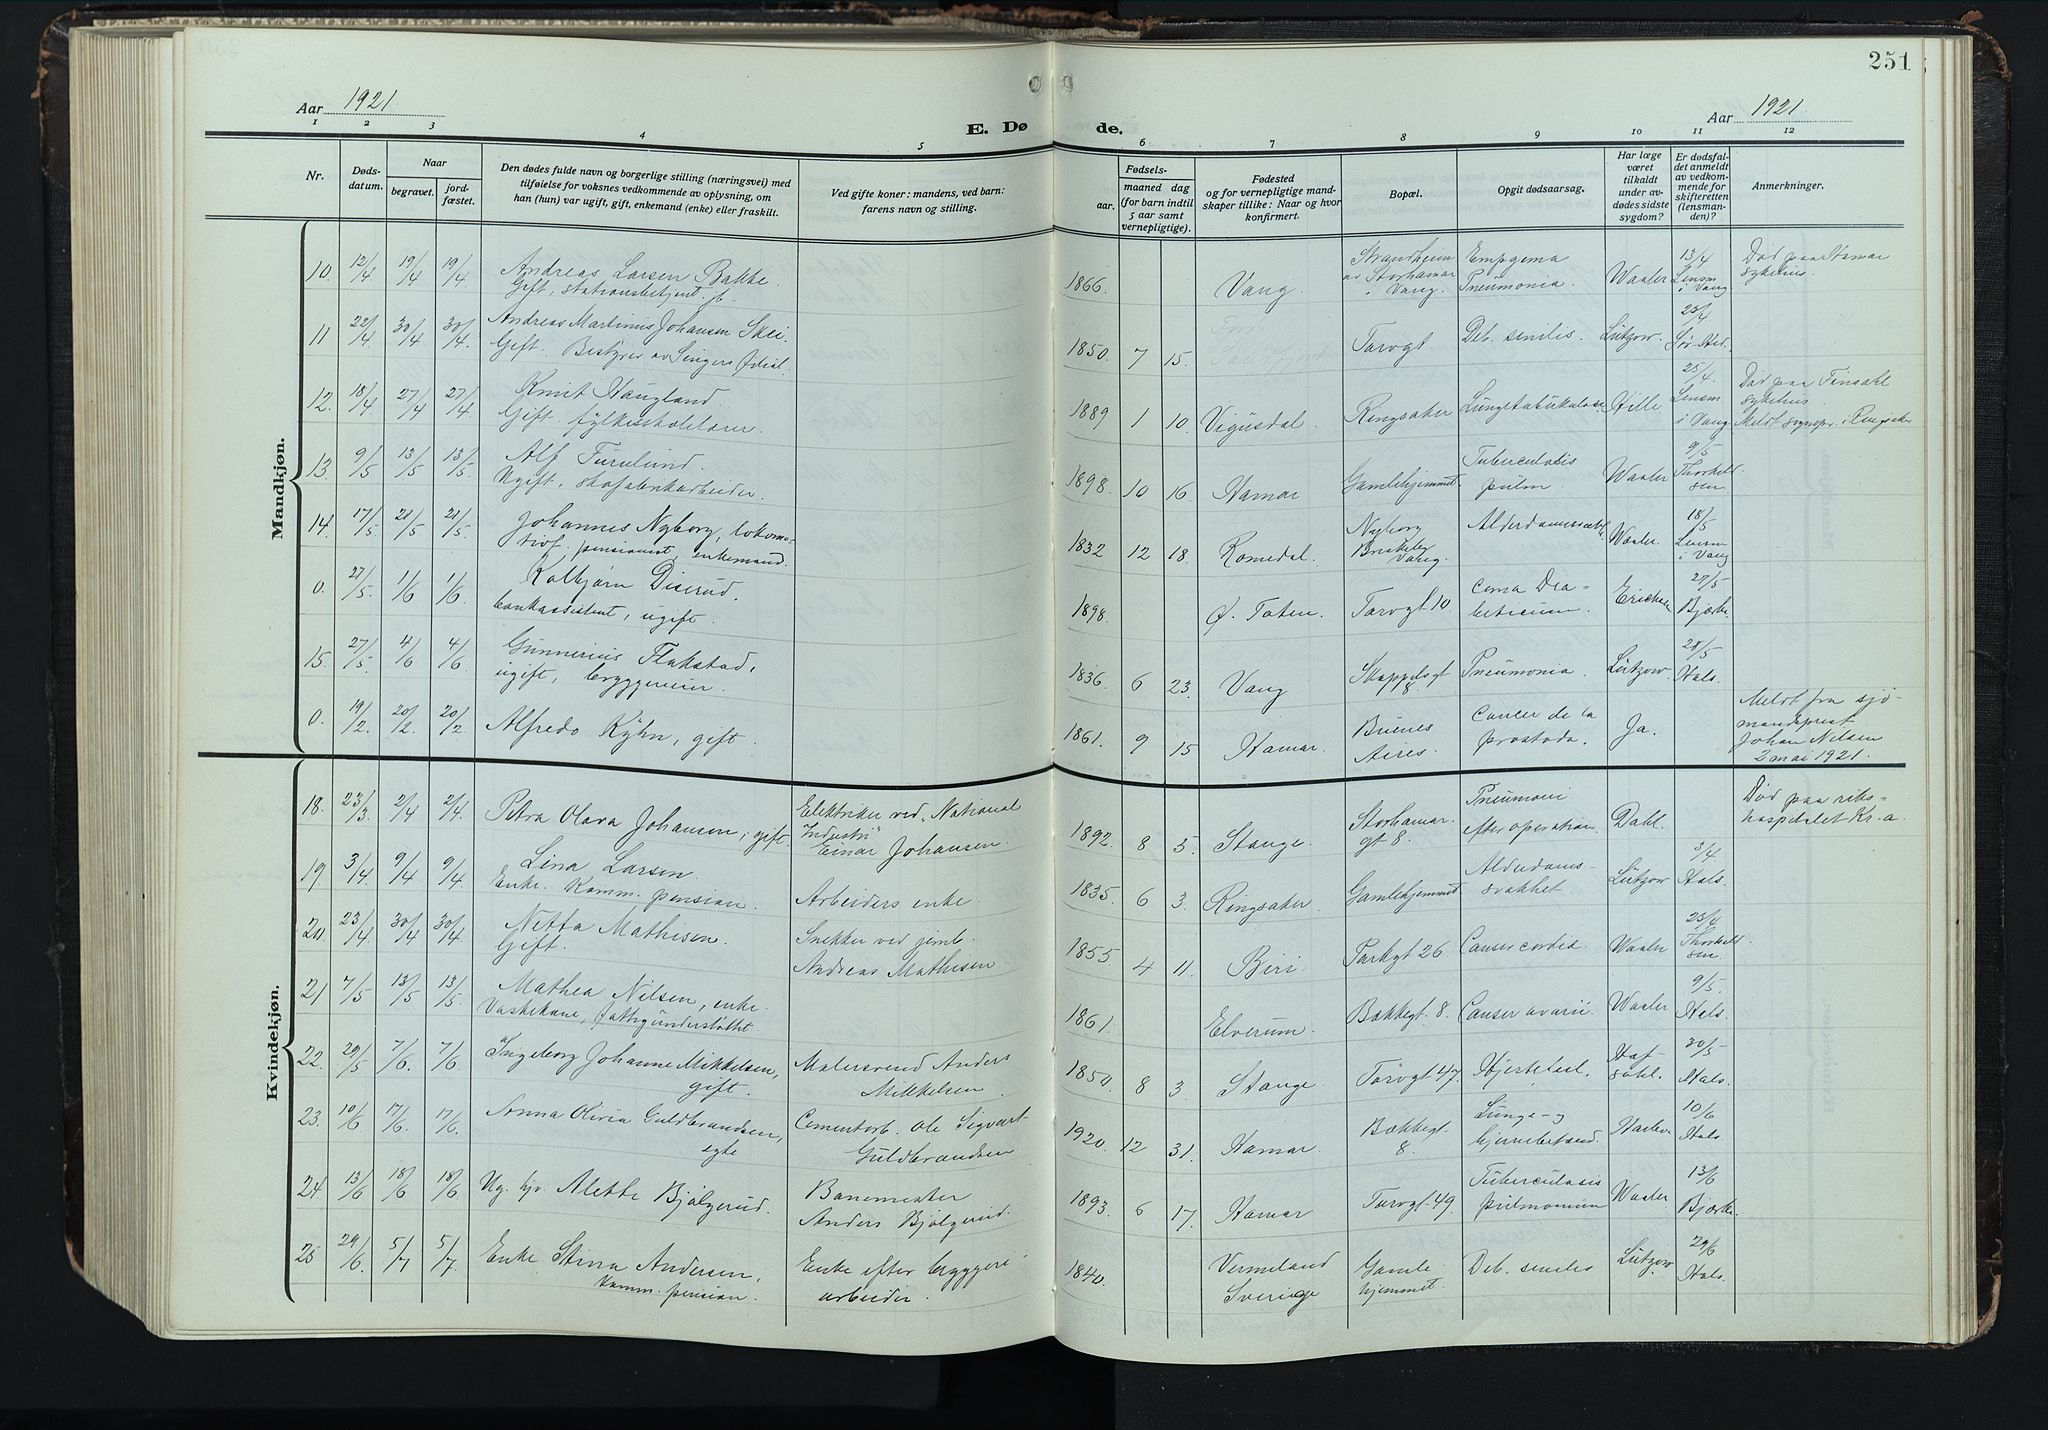 251
Aar 1921
E. Dø de.
Aar 1921.
1 2 3 4 5 6 7 8 9 10 11 12
Nr.
Døds-
datum.
Naar
begravet.
jord-
fæstet.
Den dødes fulde navn og borgerlige stilling (næringsvei) med
tilføielse for voksnes vedkommende av oplysning, om
han (hun) var ugift, gift, enkemand (enke) eller fraskilt.
Ved gifte koner: mandens, ved barn:
farens navn og stilling.
Fødsels-
aar.
maaned dag
(for barn indtil
5 aar samt
vernepligtige).
Fødested
og for vernepligtige mand-
skaper tillike: Naar og hvor
konfirmert.
Bopæl.
Opgit dødsaarsag.
Har læge
været
tilkaldt
under av-
dødes sidste
sygdom?
Er dødsfal-
det anmeldt
av vedkom-
mende for
skifteretten
(lensman-
den)?
Anmerkninger.
Mandkjøn.
10. 12/4 19/4 19/4 Andreas Larsen Bakke.
Gift, stationsbetjent
1866. Vang.
Strandheim
av Storhamar
i Vang.
Empyema
Pneumonia.
Waaler
13/4
Lensm
i Vang
Død paa Hamar
sykehus.
11 22/4 30/4 30/4 Andreas Martinus Johansen Skei.
Gift. Bestyrer av Singers
1850. 7 15. Torvgt Deb. senilis. Lützow
23/4
12. 18/4 27/4 27/4 Knut Haugland.
Gift. fylkesskolelærer.
1889 1 10. Vigusdal. Ringsaker Lungetuberkulose Hille.
25/4.
Lensm
i Vang
Død paa Finsahl
sykehus.
Meldt sognepr. i Ringsaker
13. 9/5 13/5 13/5 Alf Furulund.
Ugift, skofabrikarbeider.
1898. 10 16. Hamar Gamlehjemmet.
Tuberculosis
pulm
Waaler
9/5
Thorkild-
sen
14. 17/5 21/5 21/5 Johannes Nyborg, lokomo-
tivf. pensionist, enkemand.
1832 12 18. Romedal.
Nyborg
Briskeby
Vang.
Waaler.
18/5
Lensm
i Vang
0. 27/5. 1/6 1/6 Kolbjørn Diserud.
bankassistent, ugift.
1898. Ø. Toten. Torvgt 10.
Coma Dia-
beticum.
Ericksen
27/5
Bjørke
15. 27/5 4/6 4/6. Gunnerius Flakstad,
ugift, bryggereier.
1836. 6 23. Vang
Skappelsgt
8.
Pneumonia. Lützow.
28/5
Hals.
0. 19/2. 20/2. 20/2 Alfredo Kÿhn, gift.
1861. 9 15 Hamar.
Buenos
Aires.
Cancer de la
prostada.
Ja.
Meldt fra sjø-
mandsprest
Johan Nilsen
2 mai 1921.
Kvindekjøn.
18. 23/3. 2/4 2/4. Petra Olava Johansen, gift.
Elektriker ved "National
Industri"
Einar Johansen.
1892. 8 5. Stange.
Storhamar-
gt 8.
Pneumoni
efter operation.
Dahl.
Død paa riks-
hospitalet Kr.a.
19 3/4 9/4 9/4 Lina Larsen.
Enke. Komm. pension.
Arbeiders enke.
1835 6 3. Ringsaker Gamlehjemmet
Alderdoms-
svakhet.
Lützow
3/4
Hals.
20. 23/4 30/4 30/4 Netta Mathisen.
Gift.
Snekker ved jernb.
Andreas Mathisen
1855 4 11. Biri. Parkgt 26. Cancer cordia. Waaler
25/4
Thorkild-
sen.
21 7/5 13/5 13/5. Mathea Nilsen, enke.
Vaskekone, fattigunderstøttet
1861. Elverum. Bækkegt. 8. Cancer ovarii. Waaler
9/5.
Hals.
22. 29/5 7/6. 7/6. Ingeborg Johanne Mikkelsen,
gift.
Malersvend Anders
Mikkelsen.
1850. 8 3. Stange. Torvgt 47. Hjertefeil.
Haf-
sahl.
30/5
Hals.
23. 10/6 17/6. 17/6. Anna Olivia Guldbrandsen,
egte
Cementarb. Ole Sigvart
Guldbrandsen
1920 12 31. Hamar.
Bækkegt.
8.
Lunge- og
hjernebetænd.
10/6
Hals.
24. 13/6 18/6 18/6 Ug. hjv. Alette Bjølgerud.
Banemester
Anders Bjølgerud.
1893. 6 17. Hamar Torvgt. 49.
Tuberculosis
pulmonium
Waaler.
13/6
Bjørke.
25. 29/6. 5/7 5/7. Enke Stina Andersen,
Komm. pension.
Enke efter bryggeri
arbeider.
1840.
Vermeland
Sverige
Gamle
hjemmet.
Deb. senilis Lützow
29/6
Hals.